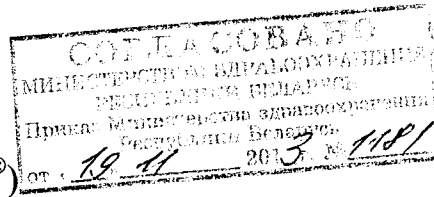 СОГЛАСОВАНО
МИНИСТЕРСТВОМ ЗДРАВООХРАНЕНИЯ
РЕСПУБЛИКИ БЕЛАРУСЬ
Приказ Министерства здравоохранения
Республики Беларусь
от 19 11 2013 г. № 1181